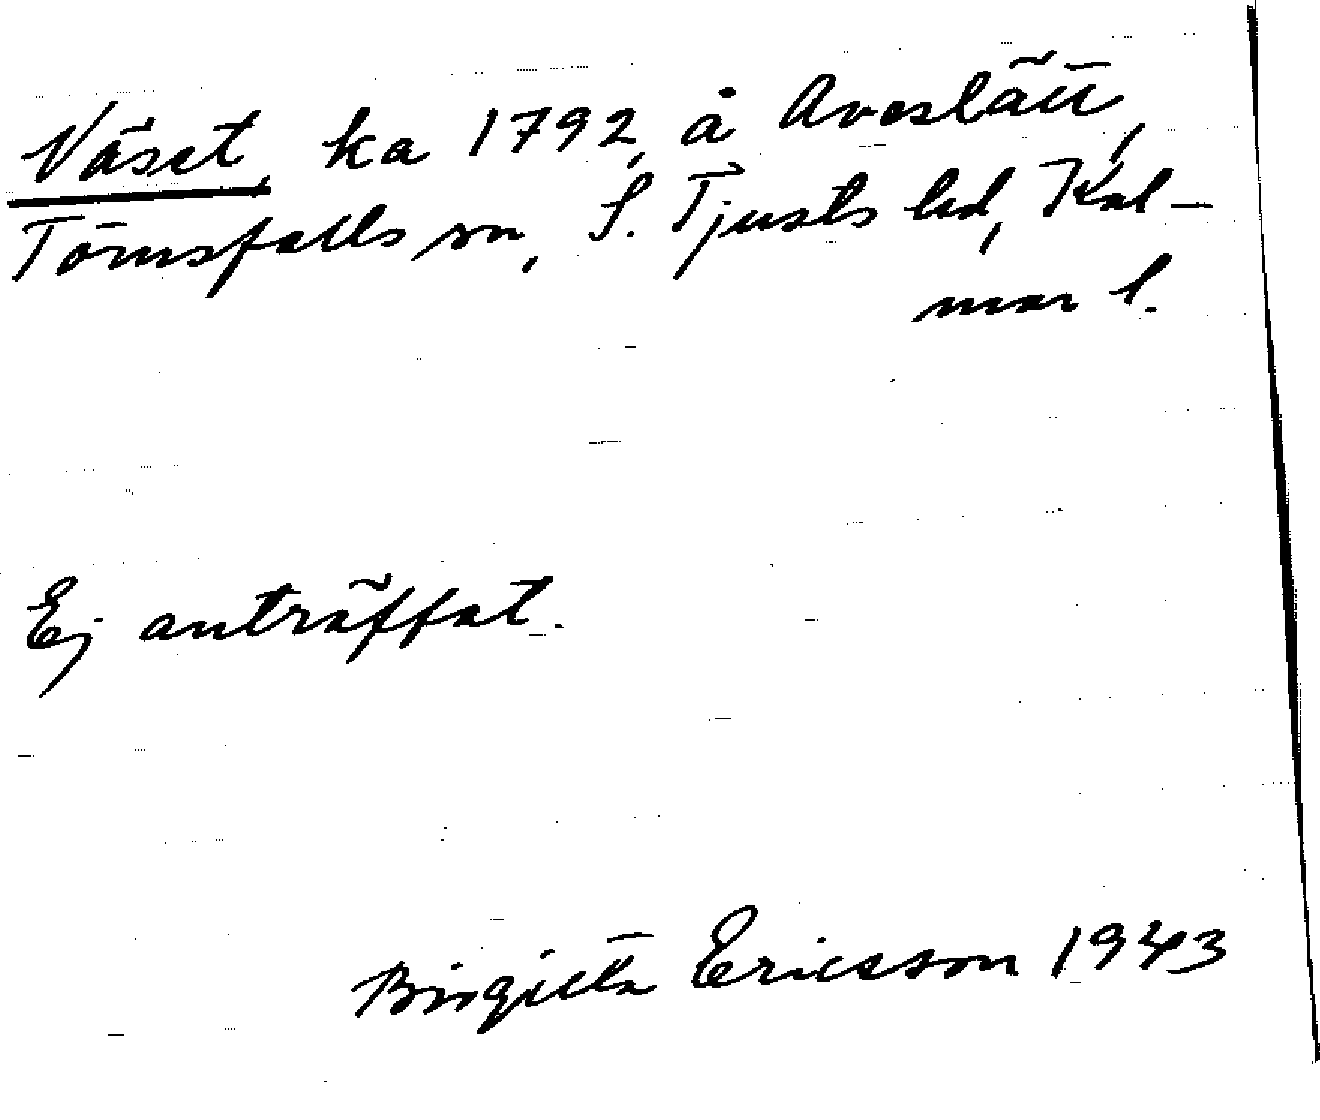 Väset, ka 1792, å Aveslätt,
Törnsfalls sn, S. Tjusts hd, Kal-
mar l.
Ej anträffat.
Birgitta Ericsson 1943